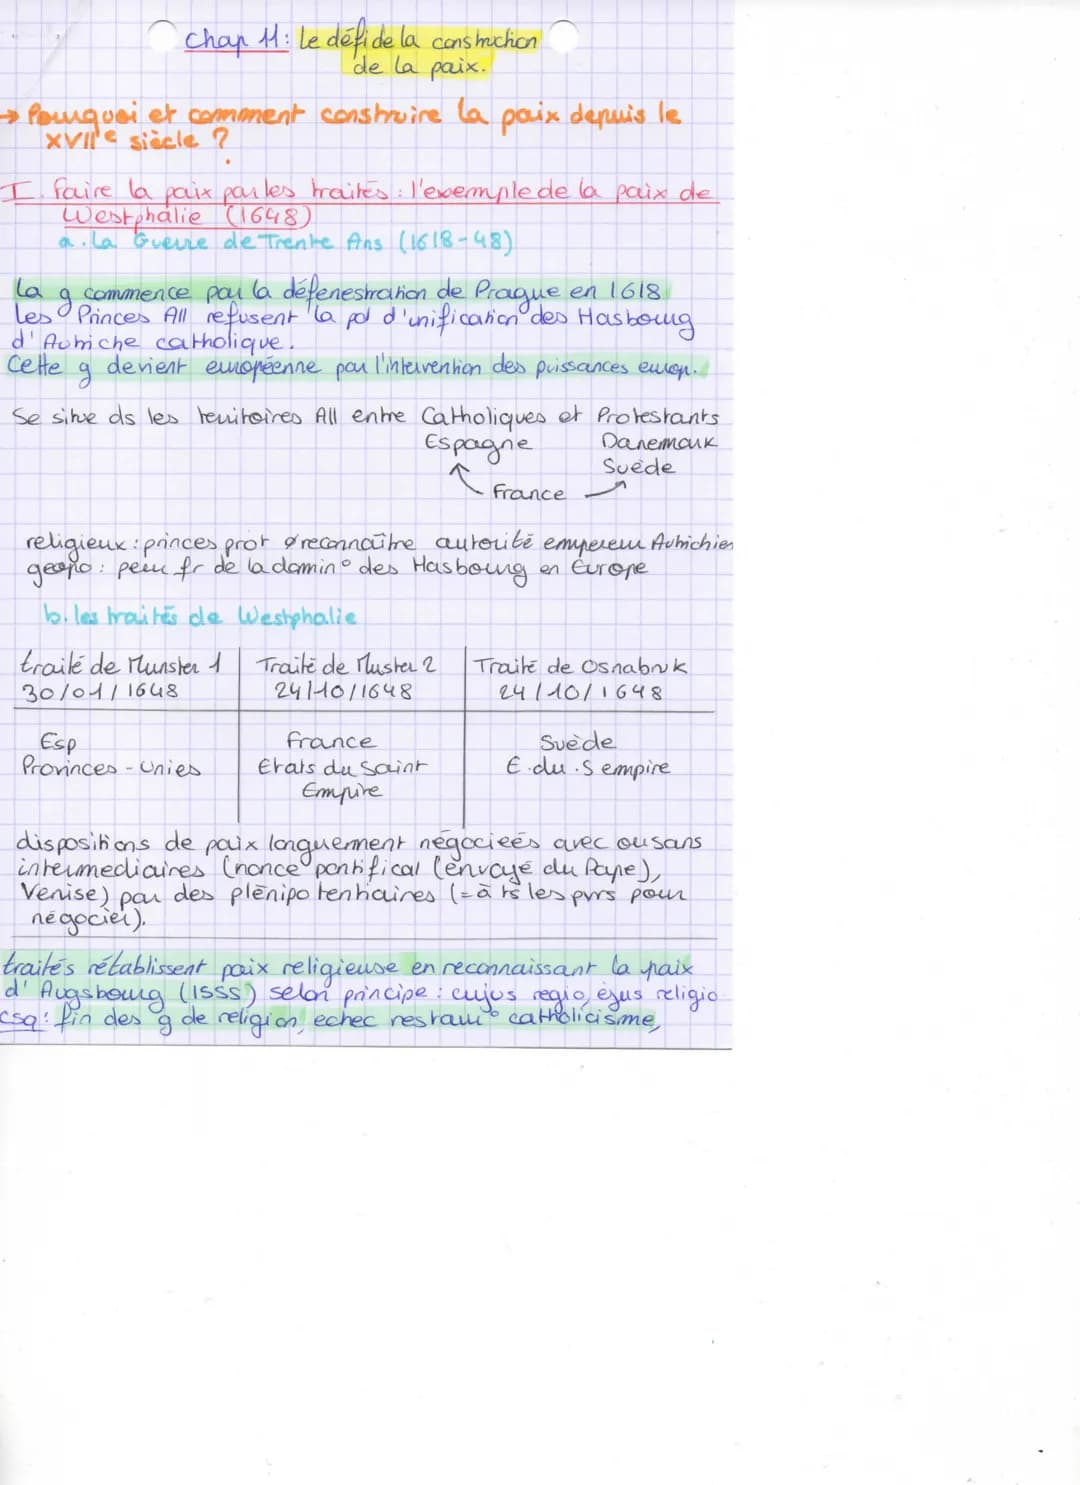 Chap 11: Le défi de la construction
de la paix.
→ Pourquoi et comment construire la paix depuis le
XVIIe siècle ?
I. Faire la paix par les traités : l'exemple de la paix de
Westphalie (1648)
a. La Guerre de Trente Ans (1618-48)
La g commence par la défenestration de Prague en 1618
Les Princes All refusent la pol d'unification des Hasbourg
d'Autriche catholique.
Cette g devient européenne par l'intervention des puissances europ.
Se situe ds les territoires All entre Catholiques et Protestants
Espagne Danemark
Suède
France
religieux : princes prot ø reconnaître autorité empereur Autrichien
geopo : peur fr de la domin° des Hasbourg en Europe
b. les traités de Westphalie
traité de Munster 1 Traité de Muster 2 Traité de Osnabruk
30/01/1648 24/10/1648 24/10/1648
Esp France Suède
Provinces-Unies Etats du Saint E. du .S empire
Empire
dispositions de paix longuement négociées avec ou sans
intermediaires (nonce pontifical (envoyé du Pape),
Venise) par des plénipotentiaires (= à ts les pvrs pour
négocier).
traités rétablissent paix religieuse en reconnaissant la paix
d'Augsbourg (1555) selon principe : cujus regio, ejus religio
csq : fin des g de religion, echec restaur° catholicisme,